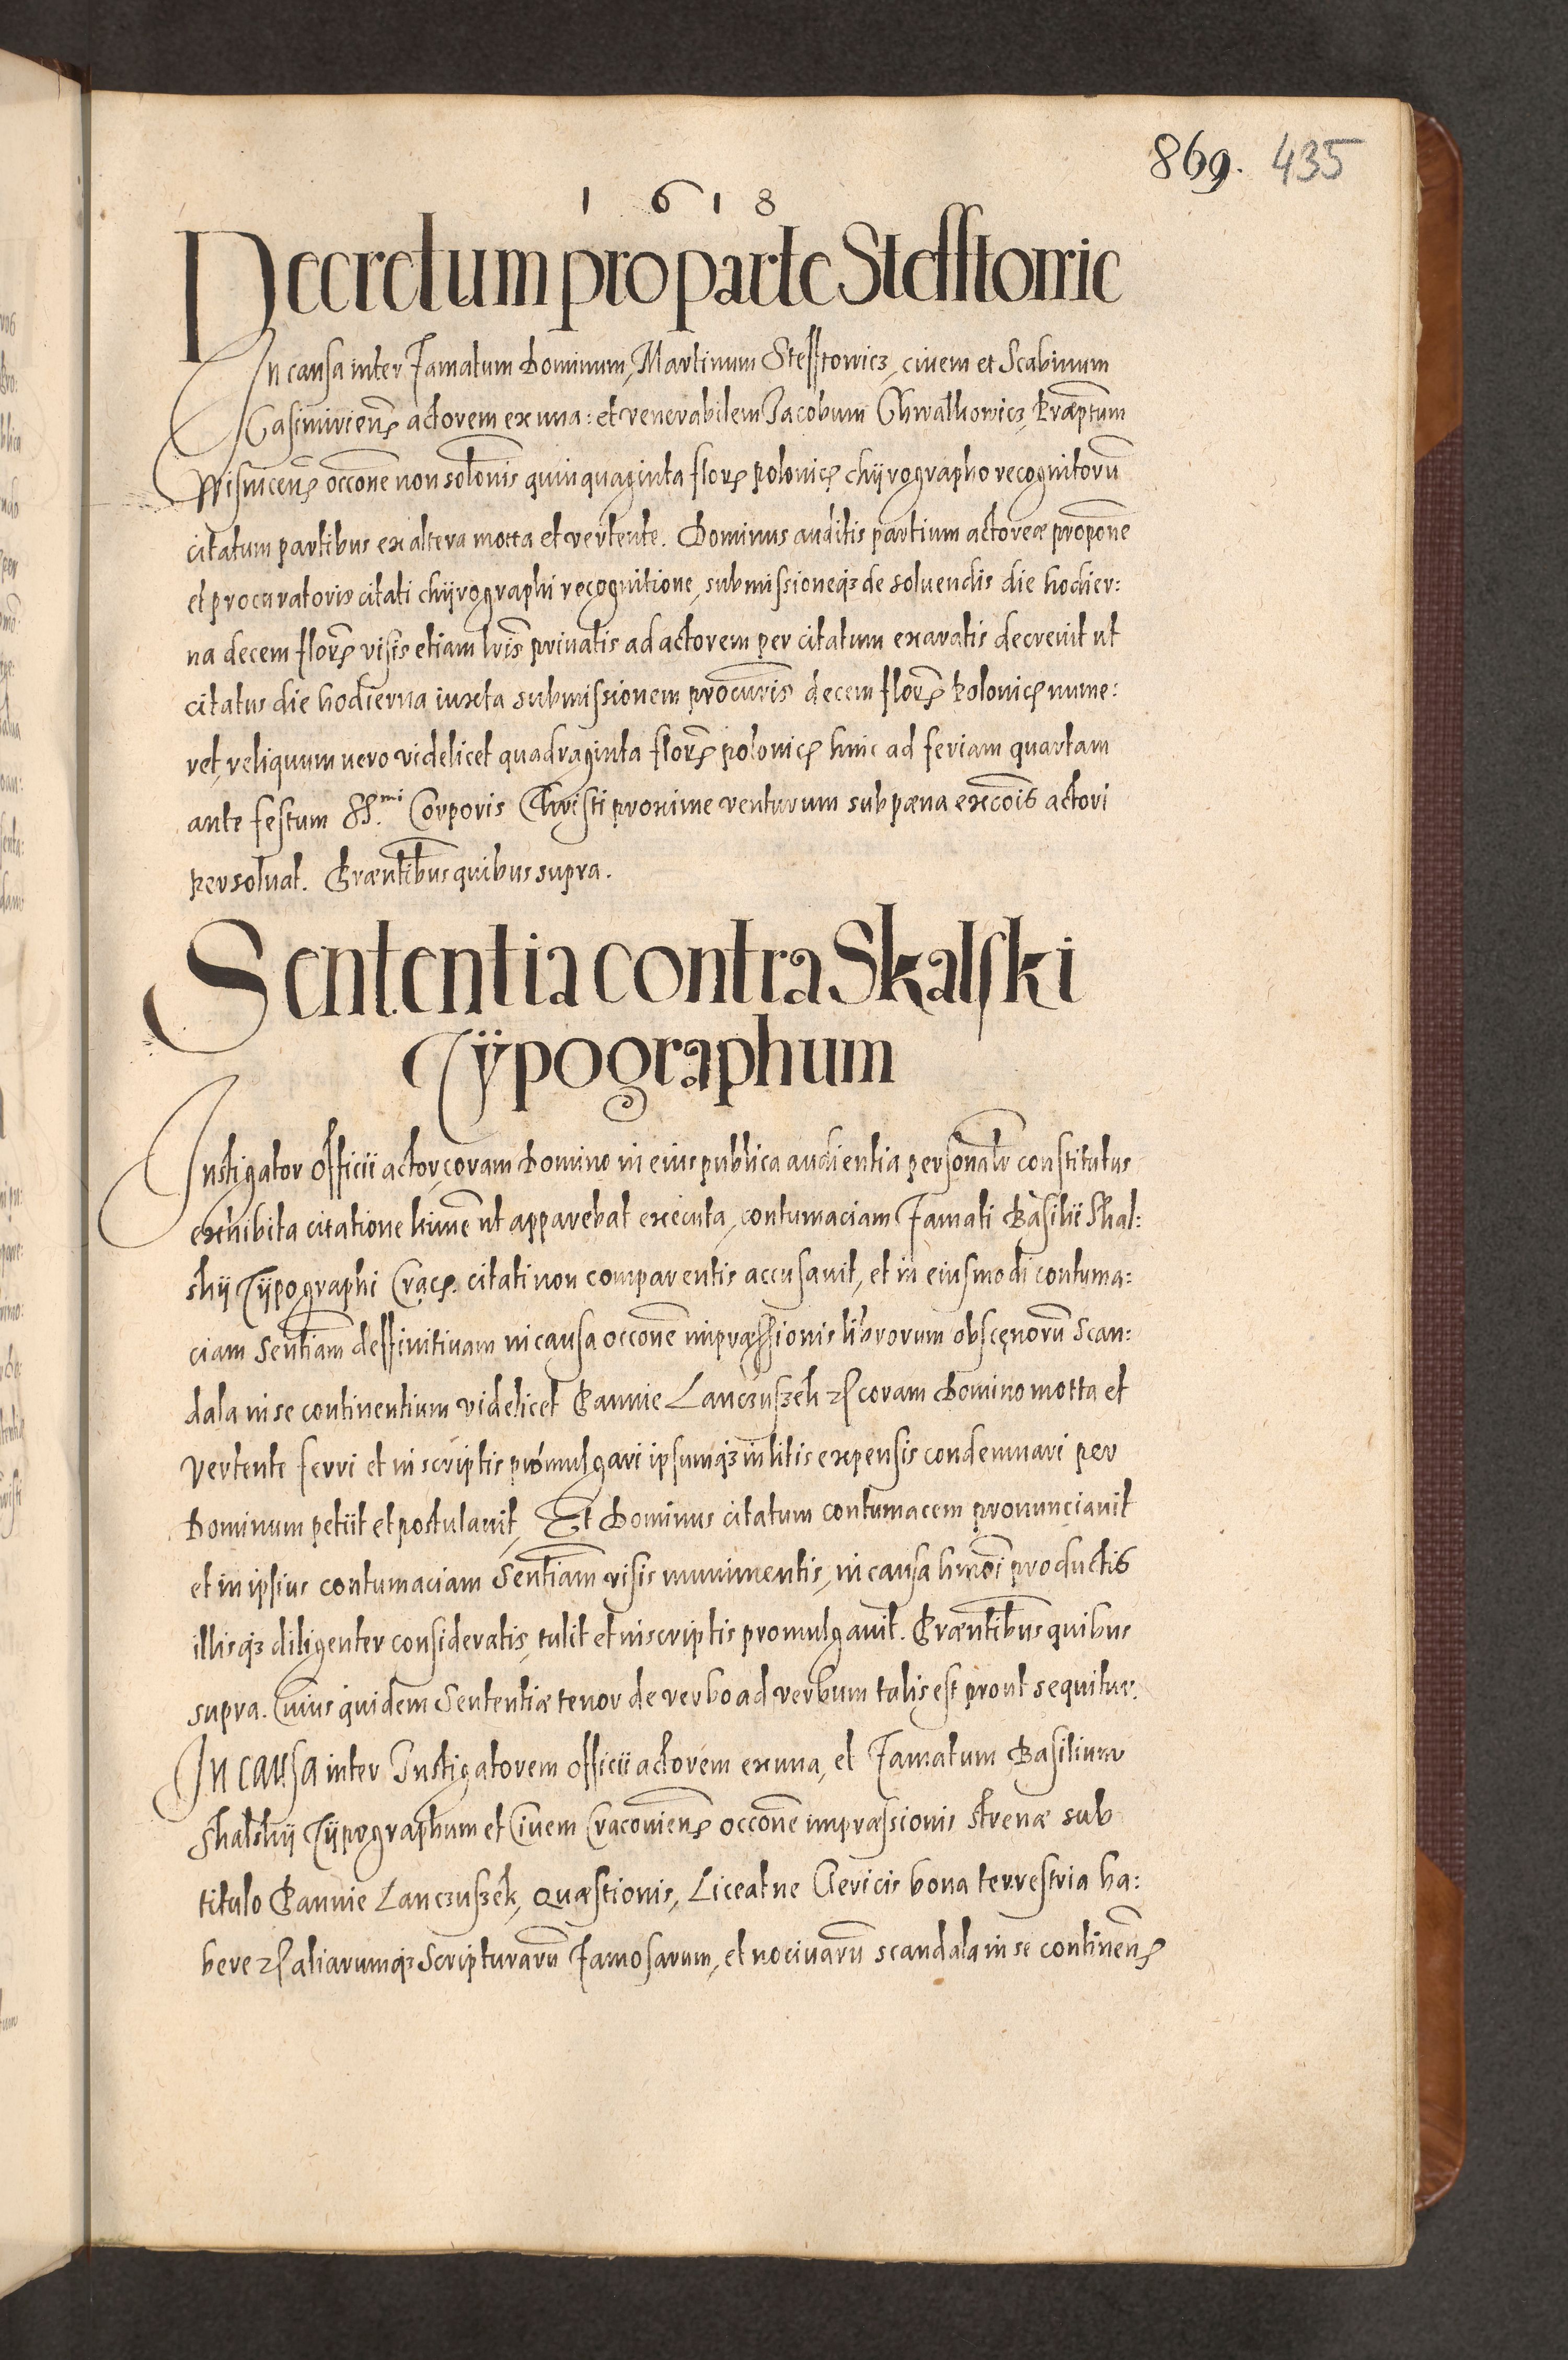 869. 435
1618
Decretum pro parte Stefftowic
In causa inter famatum Dominum, Martinum Stefftowicz, ciuem et Scabinum
Casimirien̄ actorem ex una: et venerabilem Jacobum Chwalkowicz, Præp̄tum
Wisnicen̄ occōne non sol̄onis quinquaginta flor̄ polonic̄ chÿrographo recognitorū
citatum partibus ex altera motta et vertente. Dominus auditis partium actoreæ propōne
et procuratoris citati chÿrographi recognitione, submissioneq3 de soluendis die hodier:
na decem flor̄ visis etiam lr̄is priuatis ad actorem per citatum exaratis decreuit ut
citatus die hodierna iuxta submissionem procur̄is decem flor̄ Polonic̄ nume:
ret, reliquum uero videlicet quadraginta flor̄ polonic̄ hinc ad feriam quartam
ante festum SS.mi Corporis Christi proxime venturum sub pæna excōis actori
persoluat. Præn̄tibus quibus supra.
Sententia contra Skalski
Tÿpographum
Instigator officii actor, coram Domino in eius publica audientia personal̄r constitutus
exhibita citatione himē ut apparebat executa, contumaciam famati Basilii Skal:
skÿ Tÿpographi Crac̄. citati non comparentis accusauit, et in eiusmodi contuma:
ciam Sentīam deffinitiuam in causa occonē impræssionis librorum obscęnorū Scan:
dala in se continentium videlicet Pannie Lanczuszek etc coram Domino motta et
vertente ferri et in scriptis promulgari ipsumq3 in litis expensis condemnari per
Dominum petiit et postulauit, Et Dominus citatum contumacem pronunciauit
et in ipsius contumaciam Sentīam visis munimentis, in causa hmōi productis
illisq3 diligenter consideratis, tulit et in scriptis promulgauit. Præn̄tibus quibus
supra. Cuius quidem Sententiæ tenor de verbo ad verbum talis est prout sequitur.
In causa inter Instigatorem officii actorem ex una, et famatum Basilium
Skalskÿ Tÿpographum et Ciuem Cracouien̄ occonē impræssionis strenæ sub
titulo Pannie Lanczuszek, Quæstionis, Liceat ne Clericis bona terrestria ha:
bere etc aliarumq3 Scripturarū famosarum, et nociuarū scandala in se continen̄